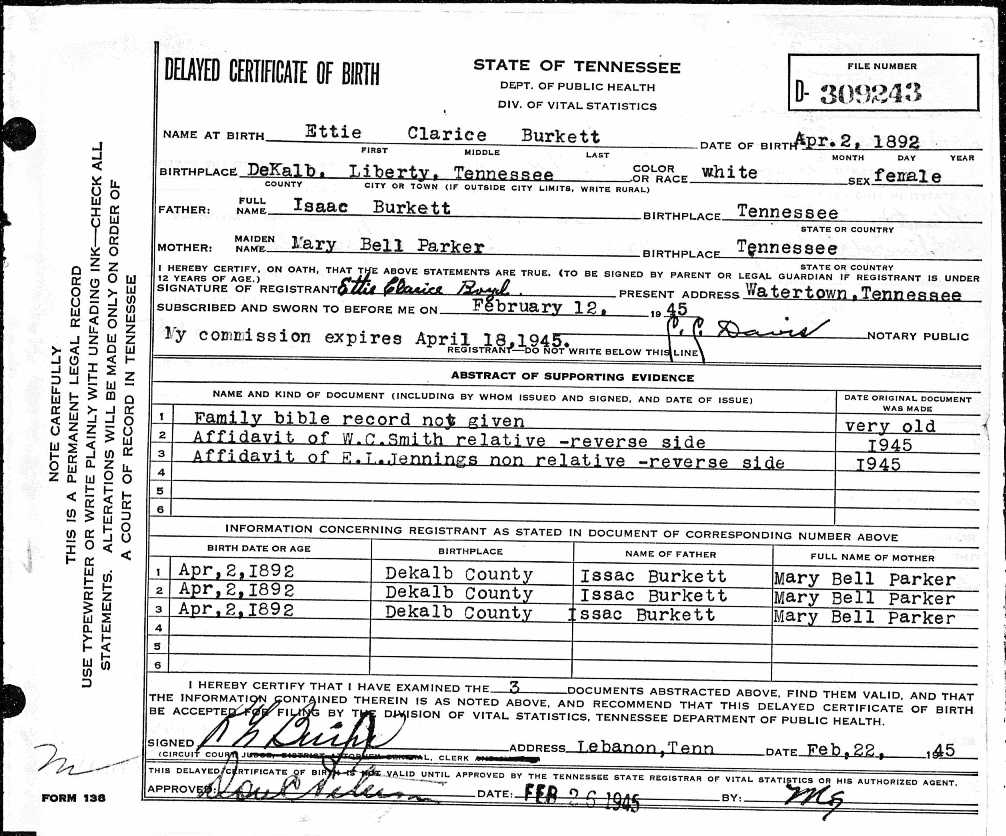 DELAYED CERTIFICATE OF BIRTH
STATE OF TENNESSEE
DEPT. OF PUBLIC HEALTH
DIV. OF VITAL STATISTICS
FILE NUMBER
D- 309243
NAME AT BIRTH Ettie Clarice Burkett DATE OF BIRTH Apr. 2, 1892
FIRST MIDDLE LAST MONTH DAY YEAR
BIRTHPLACE DeKalb, Liberty, Tennessee COLOR OR RACE white SEX female
COUNTY CITY OR TOWN (IF OUTSIDE CITY LIMITS, WRITE RURAL)
FATHER: FULL NAME Isaac Burkett BIRTHPLACE Tennessee
STATE OR COUNTRY
MOTHER: MAIDEN NAME Mary Bell Parker BIRTHPLACE Tennessee
STATE OR COUNTRY
I HEREBY CERTIFY, ON OATH, THAT THE ABOVE STATEMENTS ARE TRUE. (TO BE SIGNED BY PARENT OR LEGAL GUARDIAN IF REGISTRANT IS UNDER
12 YEARS OF AGE.)
SIGNATURE OF REGISTRANT Ettie Clarice Boyd. PRESENT ADDRESS Watertown, Tennessee
SUBSCRIBED AND SWORN TO BEFORE ME ON February 12, 1945
My commission expires April 18, 1945. C. C. Davis NOTARY PUBLIC
REGISTRANT—DO NOT WRITE BELOW THIS LINE
ABSTRACT OF SUPPORTING EVIDENCE
NAME AND KIND OF DOCUMENT (INCLUDING BY WHOM ISSUED AND SIGNED, AND DATE OF ISSUE) DATE ORIGINAL DOCUMENT WAS MADE
1 Family bible record not given very old
2 Affidavit of W.C.Smith relative -reverse side 1945
3 Affidavit of E.L.Jennings non relative -reverse side 1945
4
5
6
INFORMATION CONCERNING REGISTRANT AS STATED IN DOCUMENT OF CORRESPONDING NUMBER ABOVE
BIRTH DATE OR AGE BIRTHPLACE NAME OF FATHER FULL NAME OF MOTHER
1 Apr,2,1892 Dekalb County Issac Burkett Mary Bell Parker
2 Apr,2,1892 Dekalb County Issac Burkett Mary Bell Parker
3 Apr,2,1892 Dekalb County Issac Burkett Mary Bell Parker
4
5
6
I HEREBY CERTIFY THAT I HAVE EXAMINED THE 3 DOCUMENTS ABSTRACTED ABOVE, FIND THEM VALID, AND THAT
THE INFORMATION CONTAINED THEREIN IS AS NOTED ABOVE, AND RECOMMEND THAT THIS DELAYED CERTIFICATE OF BIRTH
BE ACCEPTED FOR FILING BY THE DIVISION OF VITAL STATISTICS, TENNESSEE DEPARTMENT OF PUBLIC HEALTH.
SIGNED ADDRESS Lebanon, Tenn DATE Feb, 22, 1945
(CIRCUIT COURT JUDGE, DISTRICT ATTORNEY GENERAL, CLERK
THIS DELAYED CERTIFICATE OF BIRTH IS NOT VALID UNTIL APPROVED BY THE TENNESSEE STATE REGISTRAR OF VITAL STATISTICS OR HIS AUTHORIZED AGENT.
APPROVED: DATE: FEB 26 1945 BY:
NOTE CAREFULLY
THIS IS A PERMANENT LEGAL RECORD
USE TYPEWRITER OR WRITE PLAINLY WITH UNFADING INK—CHECK ALL
STATEMENTS. ALTERATIONS WILL BE MADE ONLY ON ORDER OF
A COURT OF RECORD IN TENNESSEE
FORM 136